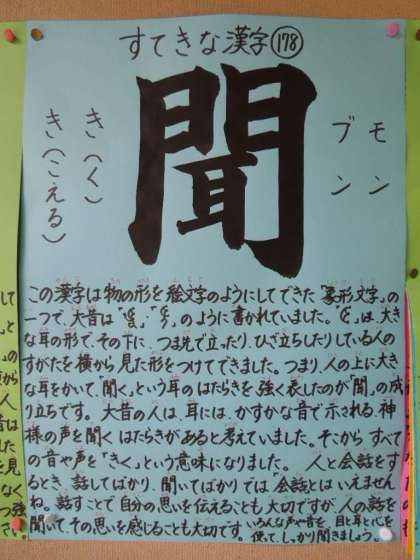 すてきな漢字178
聞
モン
ブン
き(く)
き(こえる)
この漢字は物の形を絵文字のようにしてできた「象形文字」の
一つで、大昔は「」「」のように書かれていました。「」は、大き
な耳の形で、その下に、つま先で立ったり、ひざ立ちしたりしている人の
すがたを横から見た形をつけてできました。つまり、人の上に大き
な耳をかいて、聞く、という耳のはたらきを強く表したのが「聞」の成
り立ちです。大昔の人は、耳には、かすかな音で示される、神
様の声を聞くはたらきがあると考えていました。そこから、すべて
の音や声を「きく」という意味になりました。人と会話をす
るとき、話してばかり、聞いてばかりでは「会話」とはいえません
ね。話すことで自分の思いを伝えることも大切ですが、人の話を
聞いて、その思いを感じることも大切です。いろんな声や音を、目と耳と心を
使って、しっかり聞きましょう。